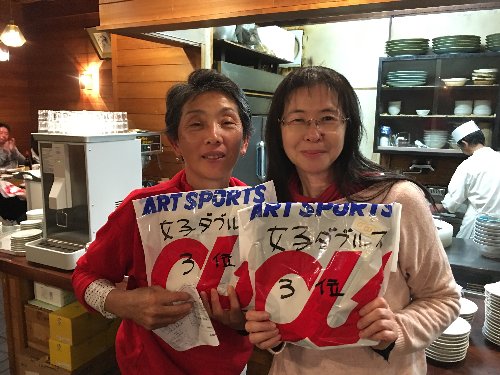 ART SPORTS
女子ダブルス
3位
ART SPORTS
女子ダブルス
3位